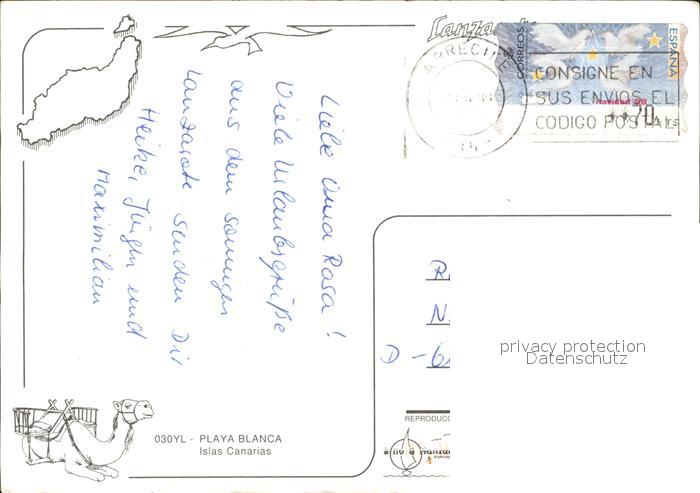 Liebe Oma Rosa!
Viele Urlaubsgrüße
aus dem sonnigen
Lanzarote senden Dir
Heike, Jürgen und
Maximilian
Lanzaro
ARRECI
CORREOS
ESPAÑA
CONSIGNE EN
SUS ENVIOS EL
CODIGO POSTAL
navidad 98
70
PTS
R
N
D - 6
privacy protection
Datenschutz
REPRODUC
030YL - PLAYA BLANCA
Islas Canarias